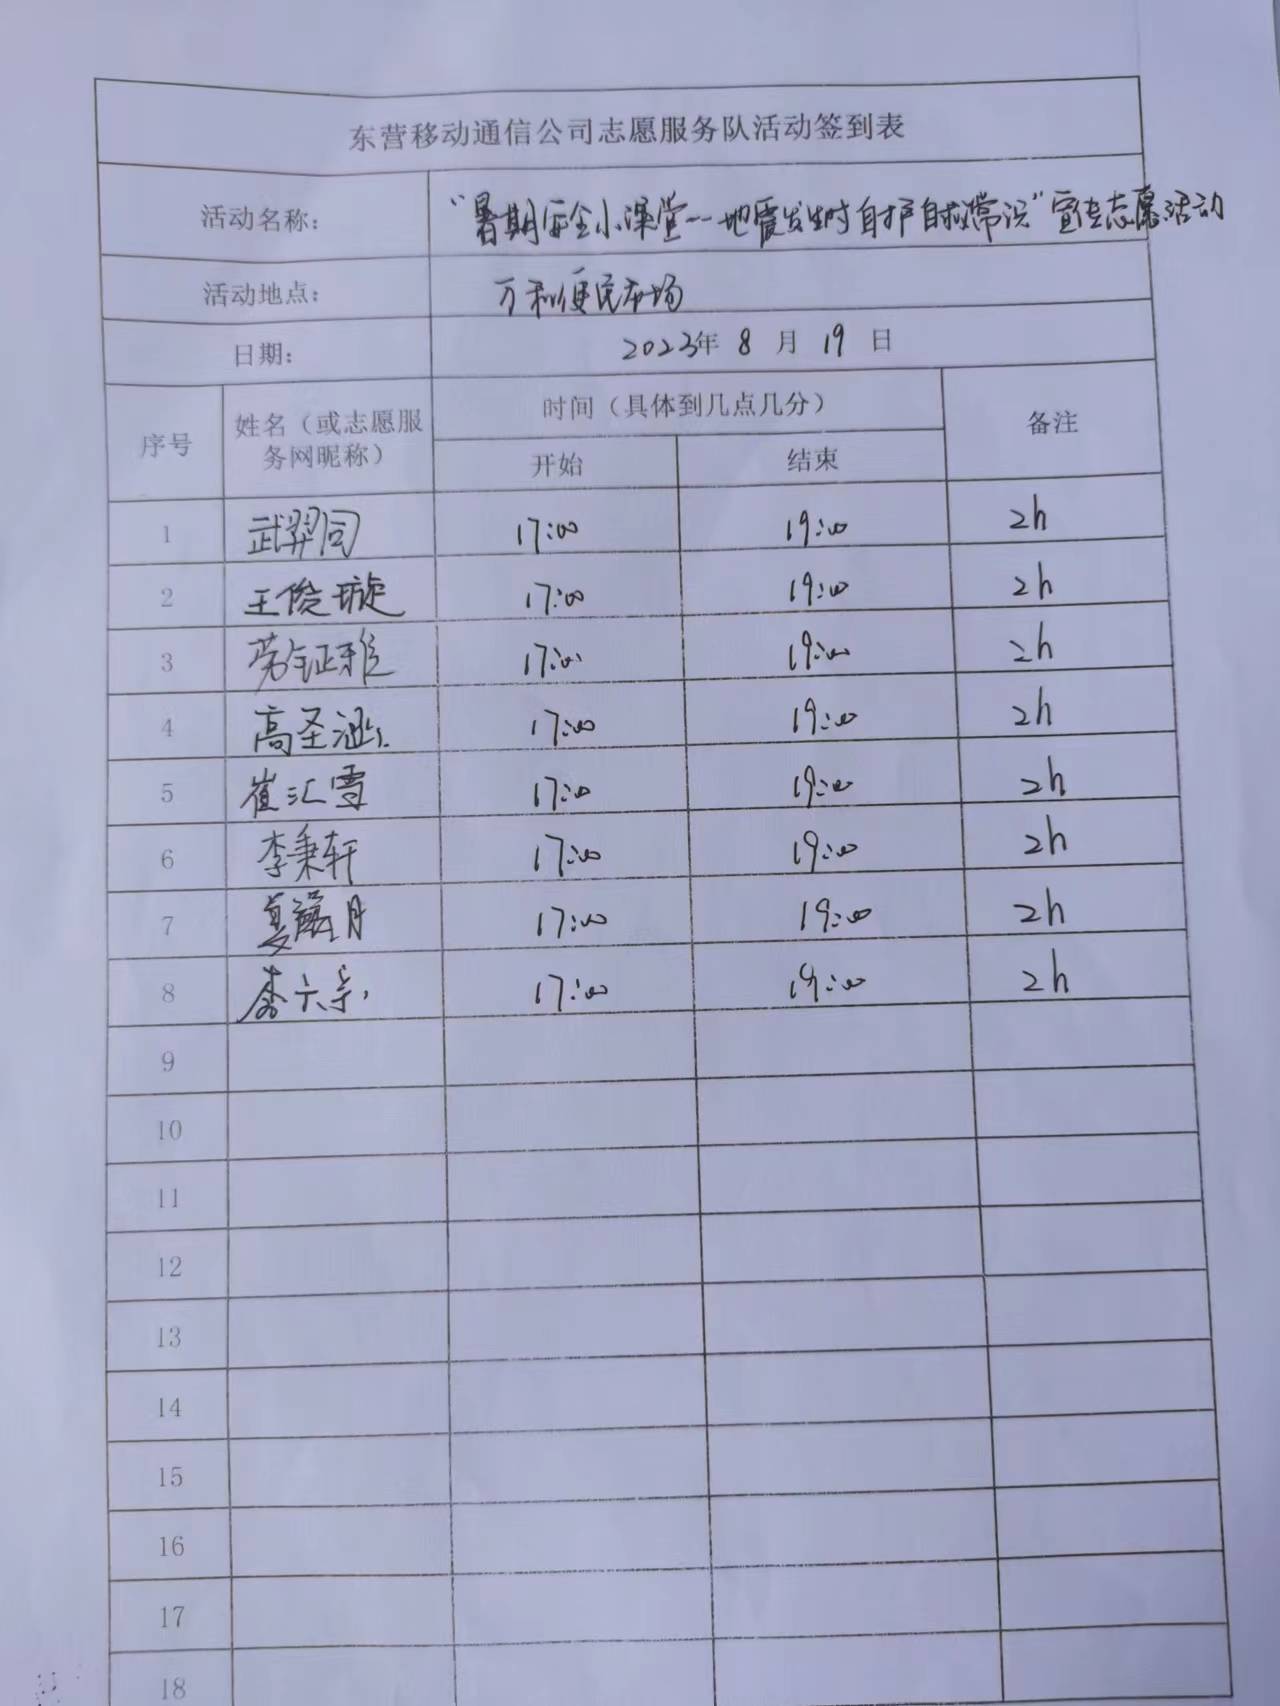 东营移动通信公司志愿服务队活动签到表
活动名称: “暑期安全小课堂--地震发生时自护自救常识”宣传志愿活动
活动地点: 万和便民市场
日期: 2023年 8 月 19 日
序号 姓名（或志愿服务网昵称） 时间（具体到几点几分） 备注
开始 结束
1 武羿同 17:00 19:00 2h
2 王俊璇 17:00 19:00 2h
3 劳钲雅 17:00 19:00 2h
4 高圣涵 17:00 19:00 2h
5 崔汇雪 17:00 19:00 2h
6 李秉轩 17:00 19:00 2h
7 夏 月 17:00 19:00 2h
8 17:00 19:00 2h
9
10
11
12
13
14
15
16
17
18